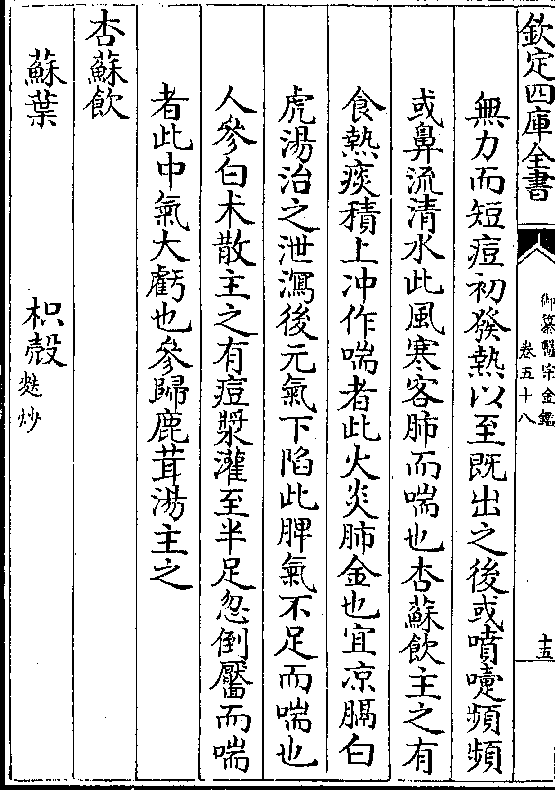 欽定四庫全書
御纂醫宗金鑑
卷五十八
十五
無力而短痘初發熱以至既出之後或噴嚏頻頻
或鼻流清水此風寒客肺而喘也杏蘇飲主之有
食熱痰積上冲作喘者此火炎肺金也宜凉膈白
虎湯治之泄瀉後元氣下陷此脾氣不足而喘也
人參白术散主之有痘漿灌至半足忽倒靨而喘
者此中氣大虧也參歸鹿茸湯主之
杏蘇飲
蘇葉　枳殼麩炒